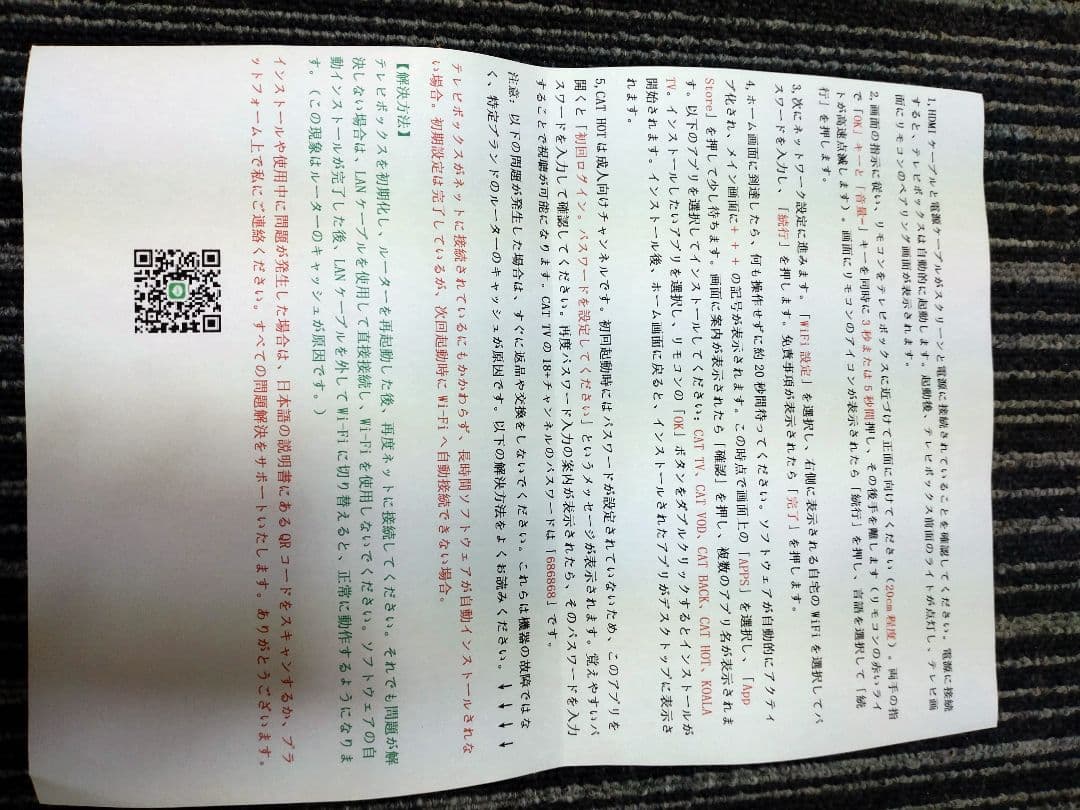 1,HDMI ケーブルと電源ケーブルがスクリーンと電源に接続されていることを確認してください。電源に接続
すると、テレビボックスは自動的に起動します。起動後、テレビボックス前面のライトが点灯し、テレビ画
面にリモコンのペアリング画面が表示されます。
2,画面の指示に従い、リモコンをテレビボックスに近づけて正面に向けてください（20cm 程度）。両手の指
で「OK」キーと「音量-」キーを同時に 3 秒または 5 秒間押し、その後手を離します（リモコンの赤いライ
トが高速点滅します）。画面にリモコンのアイコンが表示されたら「続行」を押し、言語を選択して「続
行」を押します。
3,次にネットワーク設定に進みます。「WiFi 設定」を選択し、右側に表示される自宅の WiFi を選択してパ
スワードを入力し、「続行」を押します。免責事項が表示されたら「完了」を押します。
4,ホーム画面に到達したら、何も操作せずに約 20 秒間待ってください。ソフトウェアが自動的にアクティ
ブ化され、メイン画面に+ + + の記号が表示されます。この時点で画面上の「APPS」を選択し、「App
Store」を押して少し待ちます。画面に案内が表示されたら「確認」を押し、複数のアプリ名が表示されま
す。以下のアプリを選択してインストールしてください: CAT TV、CAT VOD、CAT BACK、CAT HOT、KOALA
TV。インストールしたいアプリを選択し、リモコンの「OK」ボタンをダブルクリックするとインストールが
開始されます。インストール後、ホーム画面に戻ると、インストールされたアプリがデスクトップに表示さ
れます。
5,CAT HOT は成人向けチャンネルです。初回起動時にはパスワードが設定されていないため、このアプリを
開くと「初回ログイン。パスワードを設定してください」というメッセージが表示されます。覚えやすいパ
スワードを入力して確認してください。再度パスワード入力の案内が表示されたら、そのパスワードを入力
することで視聴が可能になります。CAT TV の 18+チャンネルのパスワードは「686868」です。
注意: 以下の問題が発生した場合は、すぐに返品や交換をしないでください。これらは機器の故障ではな
く、特定ブランドのルーターのキャッシュが原因です。以下の解決方法をよくお読みください。↓ ↓ ↓ ↓
テレビボックスがネットに接続されているにもかかわらず、長時間ソフトウェアが自動インストールされな
い場合。初期設定は完了しているが、次回起動時に Wi-Fi へ自動接続できない場合。
【解決方法】
テレビボックスを初期化し、ルーターを再起動した後、再度ネットに接続してください。それでも問題が解
決しない場合は、LAN ケーブルを使用して直接接続し、Wi-Fi を使用しないでください。ソフトウェアの自
動インストールが完了した後、LAN ケーブルを外して Wi-Fi に切り替えると、正常に動作するようになりま
す。（この現象はルーターのキャッシュが原因です。）
インストールや使用中に問題が発生した場合は、日本語の説明書にある QR コードをスキャンするか、プラ
ットフォーム上で私にご連絡ください。すべての問題解決をサポートいたします。ありがとうございます。